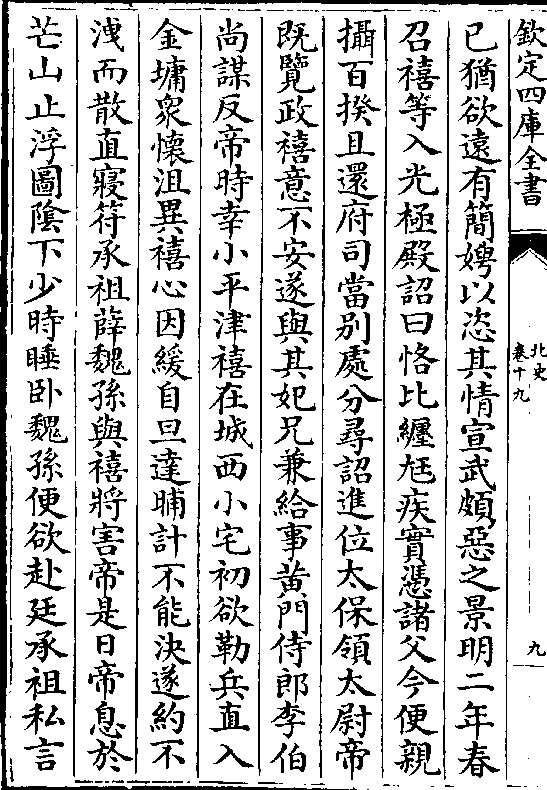 欽定四庫全書
北史
卷十九
九
已猶欲遠有簡娉以恣其情宣武頗惡之景明二年春
召禧等入光極殿詔曰恪比纒尫疾實憑諸父今便親
攝百揆且還府司當别處分尋詔進位太保領太尉帝
既覽政禧意不安遂與其妃兄兼給事黄門侍郎李伯
尚謀反帝時幸小平津禧在城西小宅初欲勒兵直入
金墉衆懷沮異禧心因緩自旦達晡計不能決遂約不
洩而散直寢符承祖薛魏孫與禧將害帝是日帝息於
芒山止浮圖隂下少時睡卧魏孫便欲赴廷承祖私言